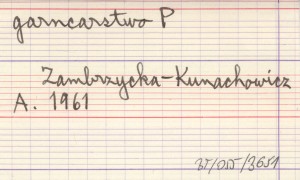 garncarstwo P
Zambrzycka-Kunachowicz
A. 1961